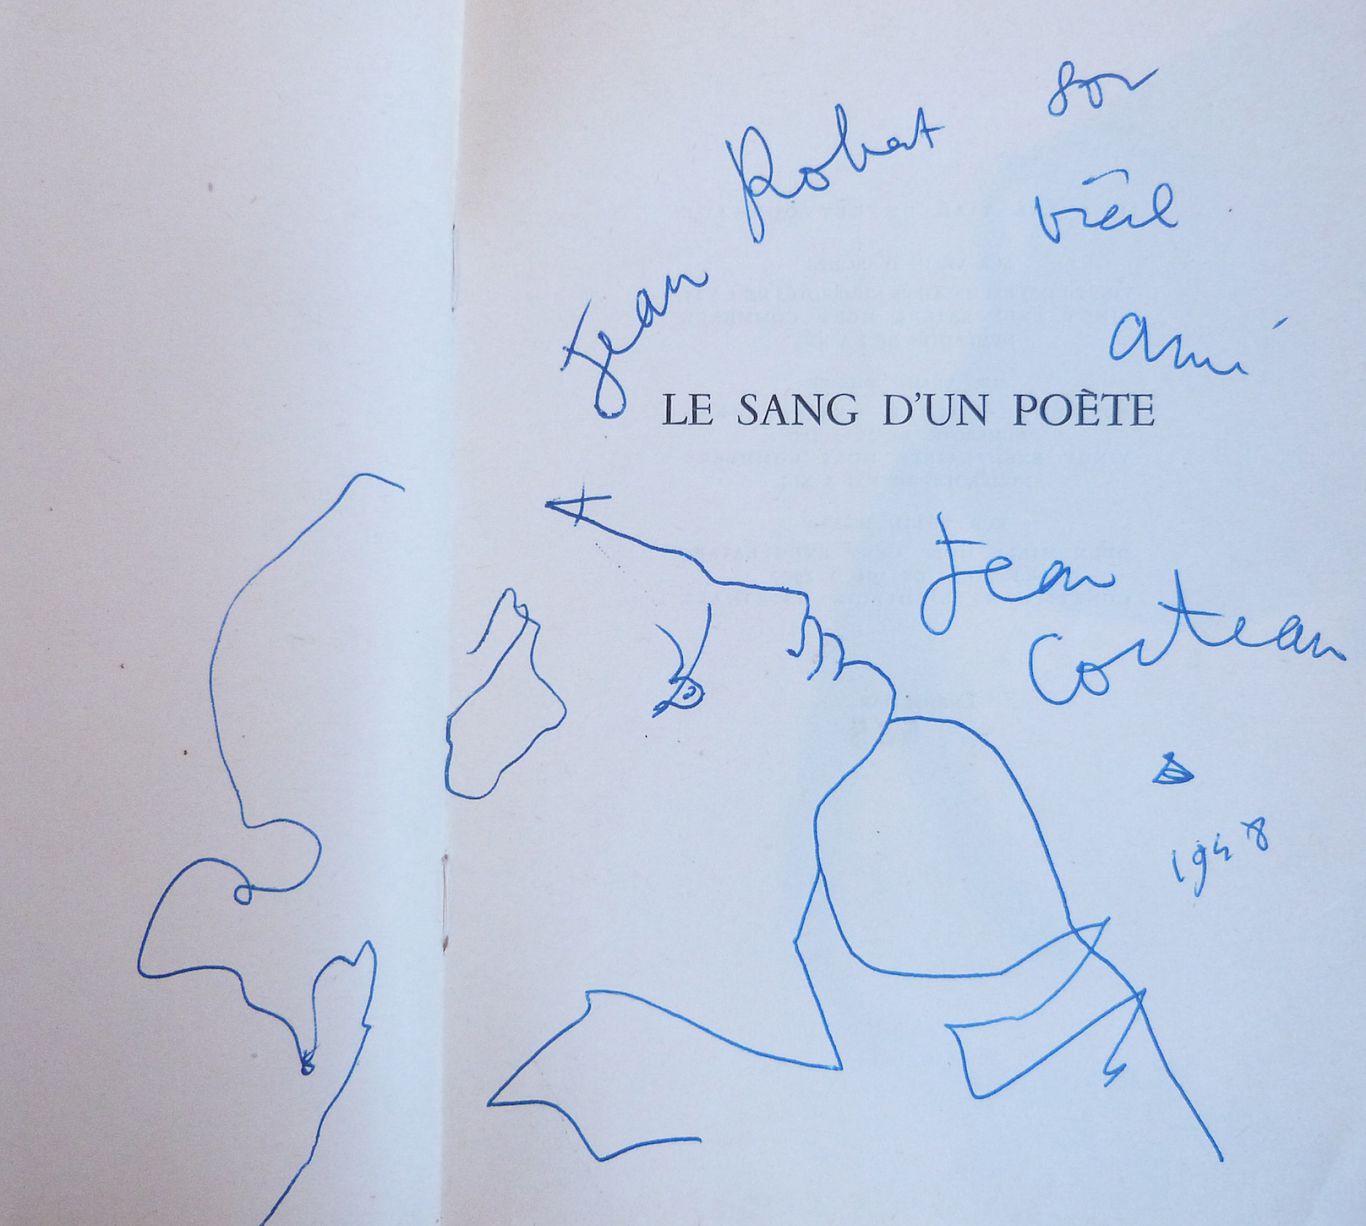 Jean Robert son
vieil
ami
LE SANG D'UN POÈTE
Jean
Cocteau
1948